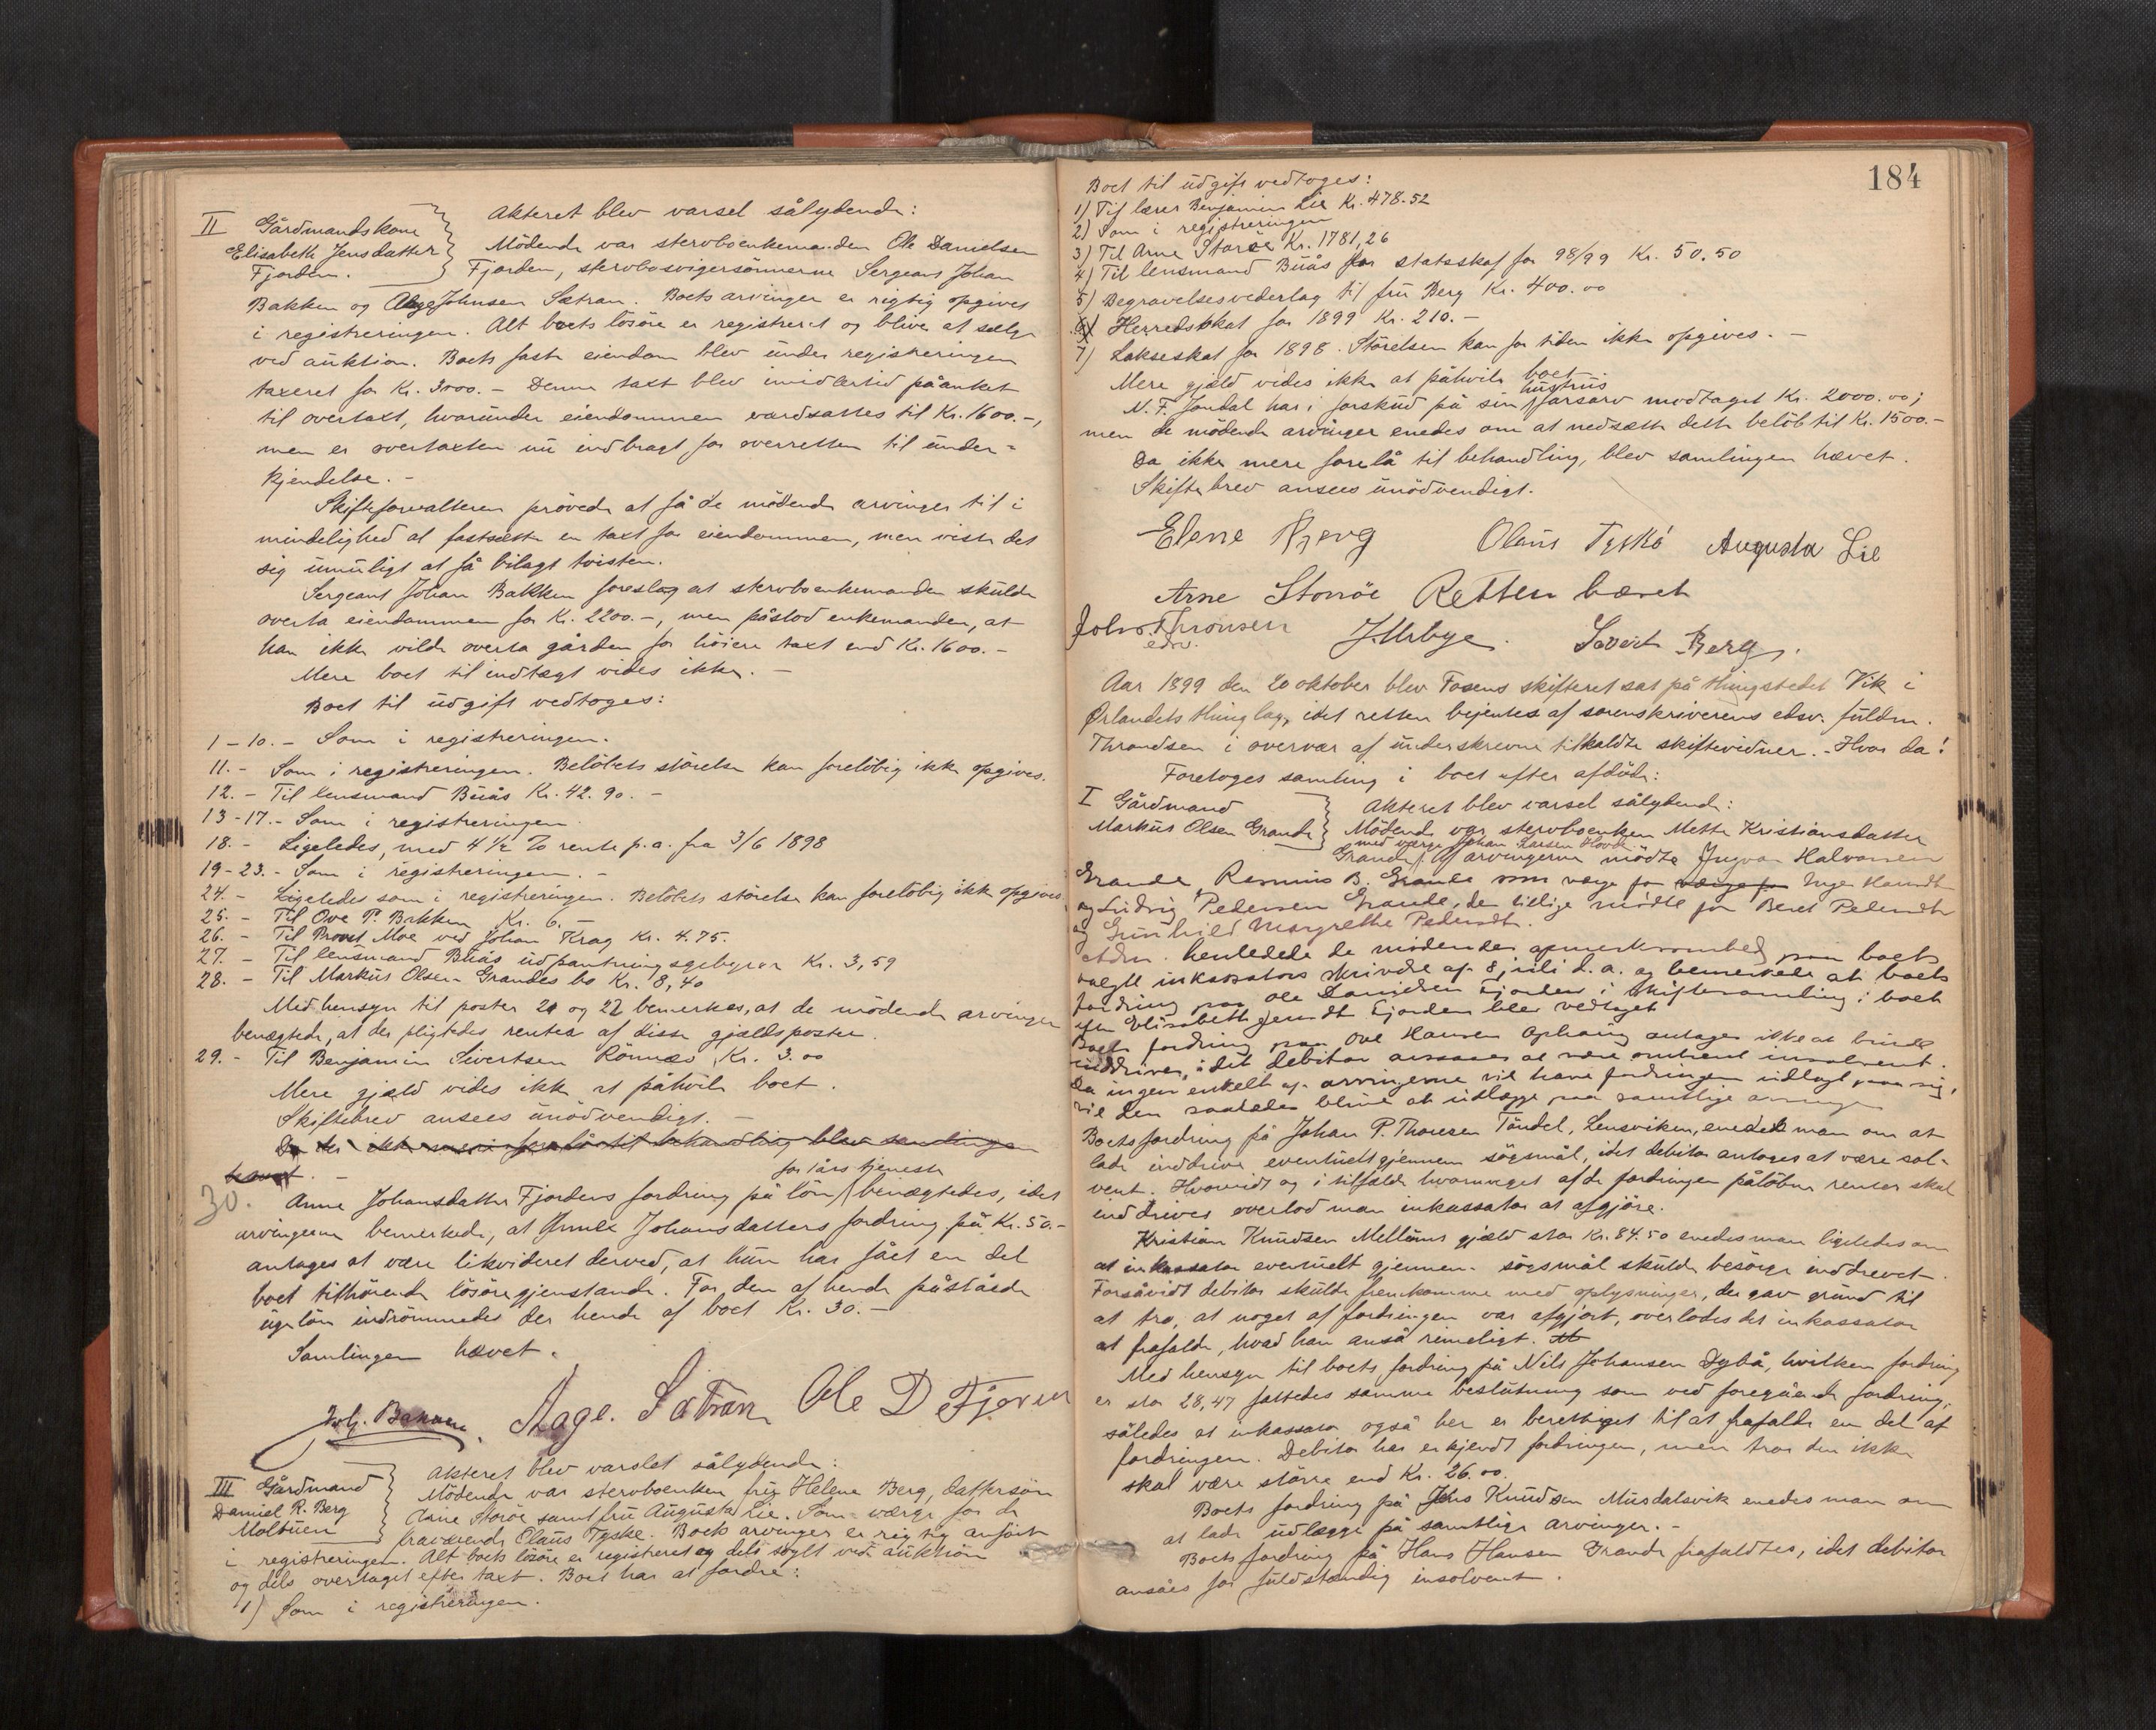 II Gårdmandskone
Elisabeth Jensdatter
Fjorden.
Akteret blev varsel sålydende:
Mödende var stervboenkemanden Ole Danielsen
Fjorden, stervbosvigersönnerne Sergeant Johan
Bakken og Aage Johnsen Sætran. Boets arvinger er rigtig opgivet
i registreringen. Alt boets lösöre er registreret og bliver at sælge
ved auktion. Boets faste eiendom blev under registreringen
taxeret for Kr. 3000.- Denne taxt blev imidlertid påanket
til overtaxt, hvorunder eiendommen værdsattes til Kr. 1600.-,
men er overtaxten nu indbragt for overretten til under-
kjendelse.-
Skifteforvalteren prövede at få de mödende arvinger til i
mindelighed at fastsætte en taxt for eiendommen, men viste det
sig umuligt at få bilagt tvisten.
Sergeant Johan Bakken foreslog at stervboenkemanden skulde
overta eiendommen for Kr. 2200.-, men påstod enkemanden, at
han ikke vilde overta gården for höiere taxt end Kr. 1600.-
Mere boet til indtægt vides ikke.-
Boet til udgift vedtoges:
1-10.- Som i registreringen.
11.- Som i registreringen. Belöbets störelse kan forelöbig ikke opgives.
12.- Til lensmand Buås Kr. 42.90.-
13-17.- Som i registreringen
18.- Ligeledes, med 4 1/2 % rente p.a. fra 3/6 1898
19-23.- Som i registreringen.-
24.- Ligeledes som i registreringen. Belöbets störelse kan forelöbig ikk opgives.
25.- Til Ove P. Bakken Kr. 6.-
26.- Til Provst Moe ved Johan Krag Kr. 4.75.
27.- Til lensmand Buås udpantningsgebyrer Kr. 3,59
28.- Til Markus Olsen Grandes bo Kr. 8,40
Med hensyn til poster 20 og 22 bemerkes, at de mödende arvinger
benægtede, at der pligtedes renter af disse gjældsposter.
29.- Til Benjamin Sivertsen Rönnes Kr. 3.00
Mere gjæld vides ikke at påhvile boet.
Skiftebrev ansees unödvendigt.-
Da der ikke mere forelå til behandling blev samlingen
hævet.-
for iårs tjeneste
30. Anne Johansdatter Fjordens fordring på lön benægtedes, idet
arvingerne bemerkede, at Anne Johansdatters fordring på Kr. 50.-
antages at være likvideret derved, at hun har fået en del
boet tilhörende lösöregjenstande. For den af hende påståede
ugelön indrömmedes der hende af boet Kr. 30.-
Samlingen hævet.
Joh. Bakken. Aage. Sætran Ole D Fjorden
III Gårdmand
Daniel R. Berg
Moltuen
Akteret blev varslet sålydende:
Mödende var stervboenken fru Helene Berg, dattersön
Arne Storöe samt fru Augusta Lie. Som værge for de
fraværende Olaus Tyske. Boets arvinger er rigtig anfört
i registreringen. Alt boets lösöre er registreret og dels solgt ved auktion
og dels overtaget efter taxt. Boet har at fordre:
1) Som i registreringen.
184
Boet til udgift vedtoges:
1) Til lærer Benjamin Lie Kr. 478.52
2) Som i registreringen
3) Til Arne Storöe Kr. 1781,26
4) Til lensmand Buås for statsskat for 98/99 Kr. 50.50
5) Begravelsesvederlag til fru Berg Kr. 400.00
6) Herredsskat for 1899 Kr. 210.-
7) Lakseskat for 1898. Störelsen kan for tiden ikke opgives.-
Mere gjæld vides ikke at påhvile boet
hustrus
N. F. Jondal har i forskud på sin farsarv modtaget Kr. 2000.00;
men de mödende arvinger enedes om at nedsætte dette belöb til Kr. 1500.-
Da ikke mere forelå til behandling, blev samlingen hævet.
Skiftebrev ansees unödvendigt.
Elene Berg Olaus Tyskö Augusta Lie
Arne Storröe Retten hævet
Johs. Thronsen
edsv.
J. Urbye. Sivert Berg.
Aar 1899 den 20 oktober blev Fosens skifteret sat på thingstedet Vik i
Örlandets thinglag, idet retten bejentes af sorenskriverens edsv. fuldm.
Throndsen i overvær af underskrevne tilkaldte skiftevidner.- Hvor da:
Foretoges samling i boet efter afdöde:
I Gårdmand
Markus Olsen Grande
Akteret blev varsel sålydende:
Mödende var stervboenken Mette Kristiansdatter
med værge Johan Larsen Hovde
Grande. Af arvingerne mödte Ingvar Halvorsen
Grande, Rasmus B. Grande som værge for værge for Inger Hansdt
og Ludvig Pedersen Grande, der tillige mödte for Beret Pedersdt
og Gunhild Margrethe Pedersdt.
henledede de mödendes opmerksomhed paa boets
valgte inkassators skrivelse af 8 juli d.a. og bemerkede at boets
fordring paa Ole Danielsen Fjorden i skiftesamling i boet
efter Elisabeth Jensdt Fjorden blev vedtaget
Boets fordring paa Ove Hansen Ophaug antages ikke at burde
inddrives, idet debitor ansees at være omtrent insolvent.
Da ingen enkelt af arvingerne vil have fordringen udlagt paa sig,
vil den saaledes blive at udlægge paa samtlige arvinger
Boets fordring på Johan P. Thoresen Töndel, Lensviken, enedes man om at
lade inddrive eventuelt gjennem sögsmål, idet debitor antages at være sol-
vent. Hvorvidt og i tilfælde hvormeget af de fordringen pålöbne renter skal
inddrives overlod man inkassator at afgjöre.
Kristian Knudsen Mellems gjæld stor Kr. 84.50 enedes man ligeledes om
at inkassator eventuelt gjennem sögsmål skulde besörge inddrevet.
Forsåvidt debitor skulde fremkomme med oplysninger, der gav grund til
at tro, at noget af fordringen var afgjort, overlodes det inkassator
at frafalde, hvad han anså rimeligt.
Med hensyn til boets fordring på Nils Johansen Dybå, hvilken fordring
er stor 28,47 fattedes samme beslutning som ved foregående fordring,
således at inkassator også her er berettiget til at frafalde en del af
fordringen. Debitor har erkjendt fordringen, men tror den ikke
skal være större end Kr. 26.00.
Boets fordring på Jens Knudsen Musdalsvik enedes man om
at lade udlægge på samtlige arvinger.-
Boets fordring på Hans Hansen Grande frafaldtes, idet debitor
ansåes for fuldstændig insolvent.